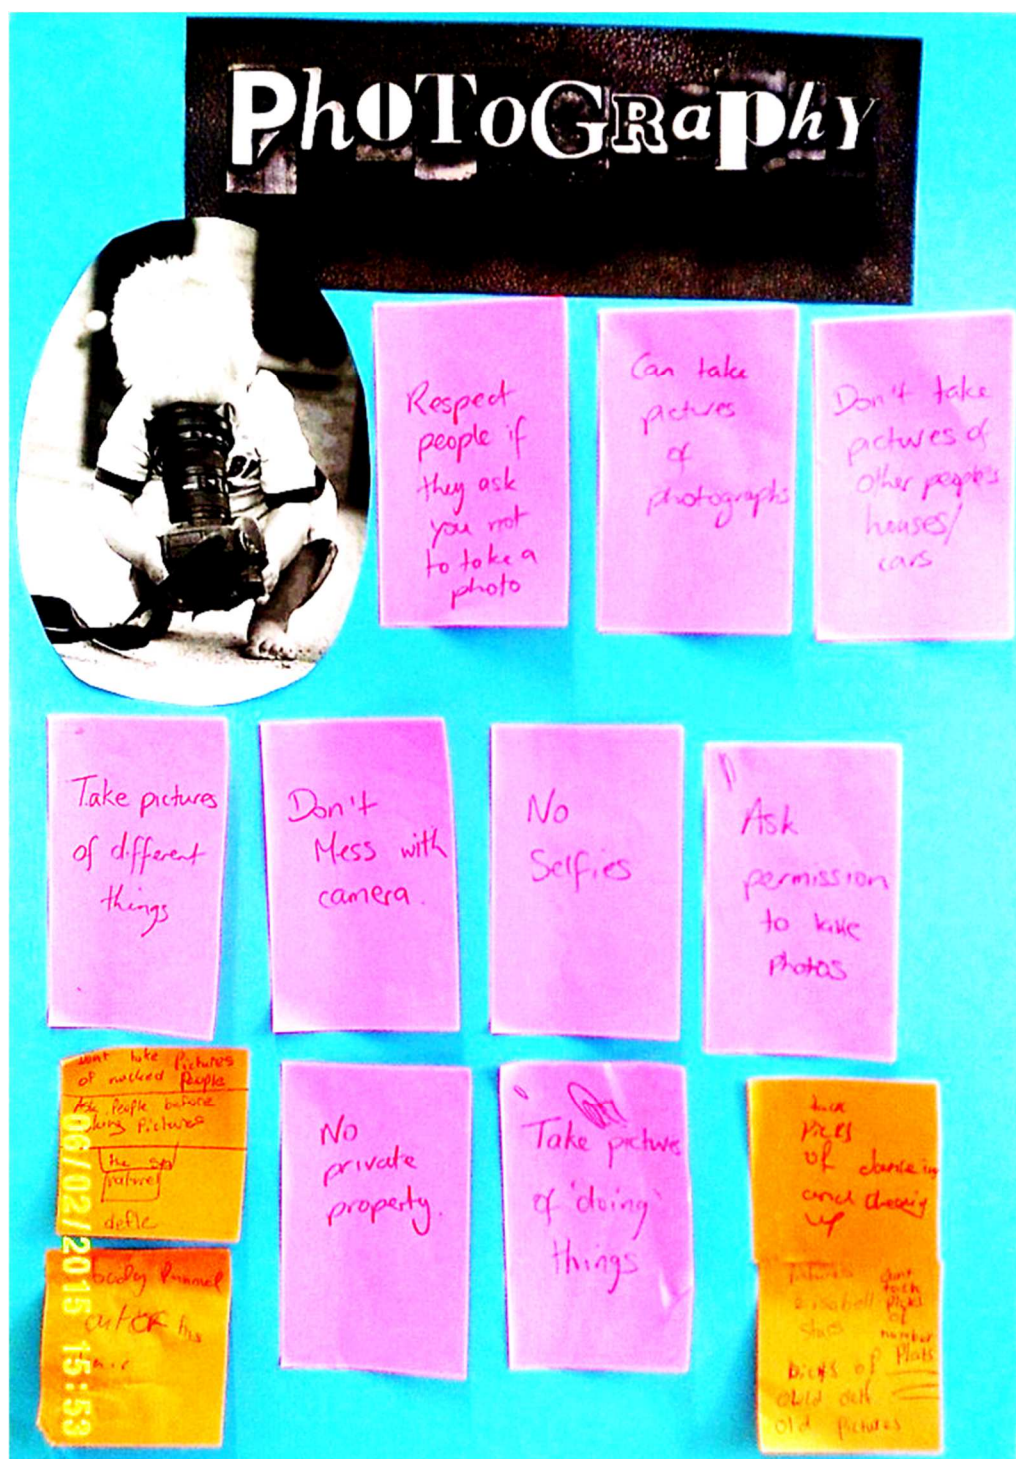 PhOToGRaphY
Respect
people if
they ask
you not
to take a
photo
Can take
pictures
of
photographs
Don't take
pictures of
other people's
houses/
cars
Take pictures
of different
things
Don't
Mess with
camera.
No
Selfies
Ask
permission
to take
photos
take Pictures
of People
Ask People before
Pictures
the
06/02/2015 15:53
No
private
property.
Take pictures
of 'doing'
things
Picks
of
and
up
picks
of
number
Plats
of
old pictures